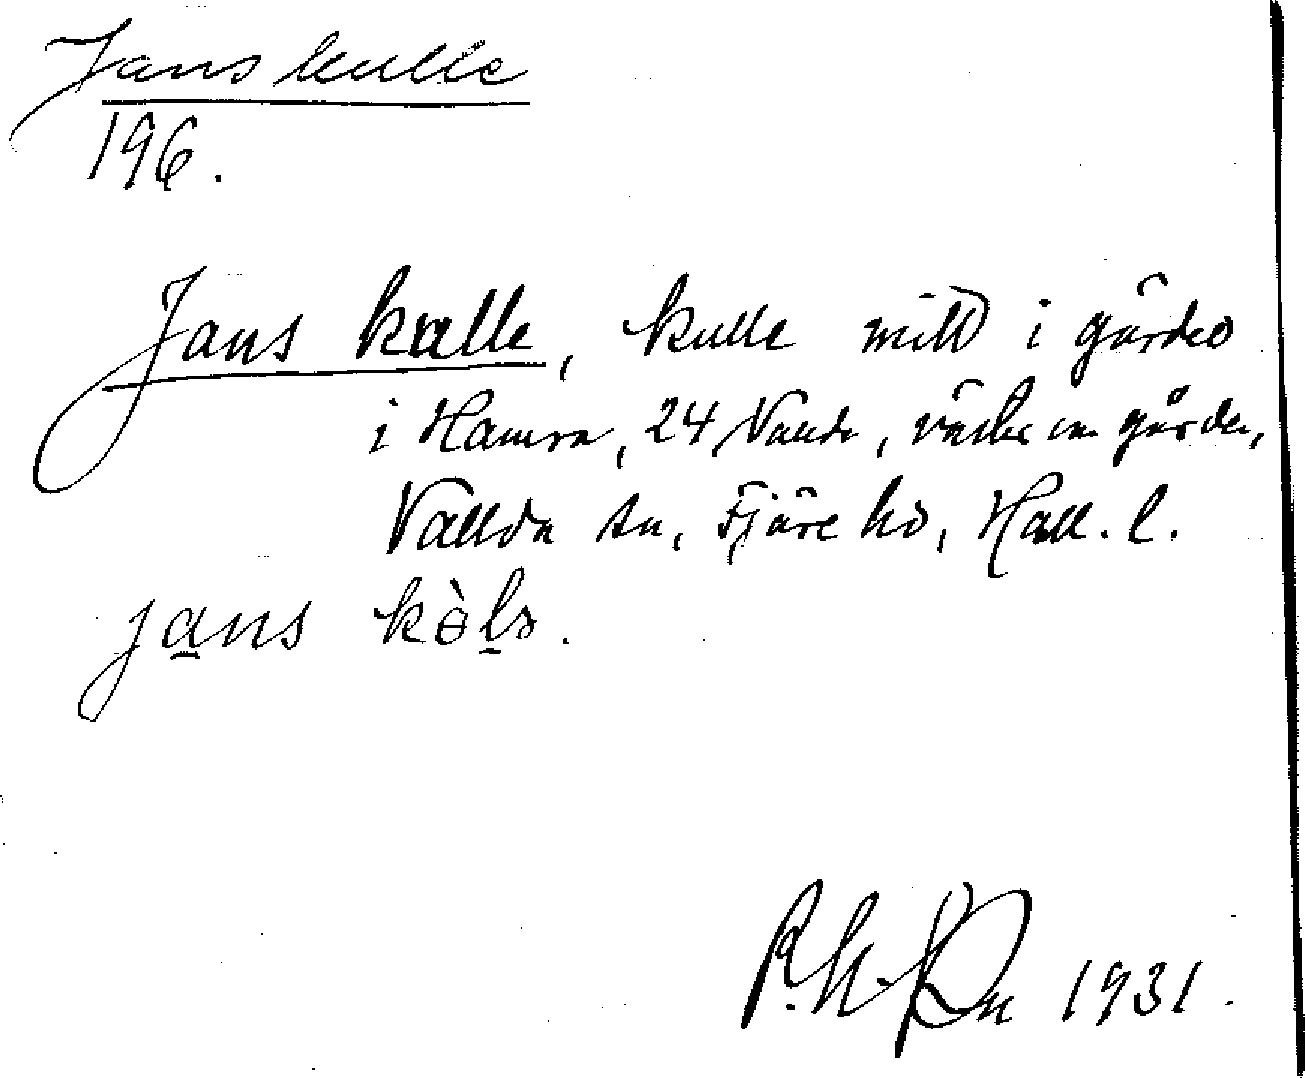 Jans kulle
196.
Jans kulle, kulle mitt i gärdes
i Hamra, 24 Vända, väster om gården,
Vallda sn, Fjäre hd, Hall. l.
jans kòls.
1931.